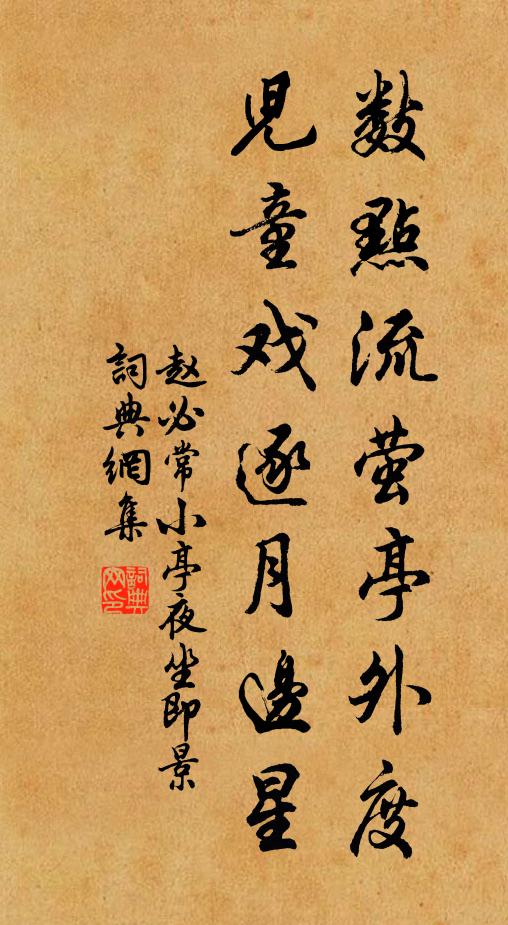 数點流萤亭外度
兒童戏逐月邊星
赵必常小亭夜坐即景
詞典網集
詞典网印